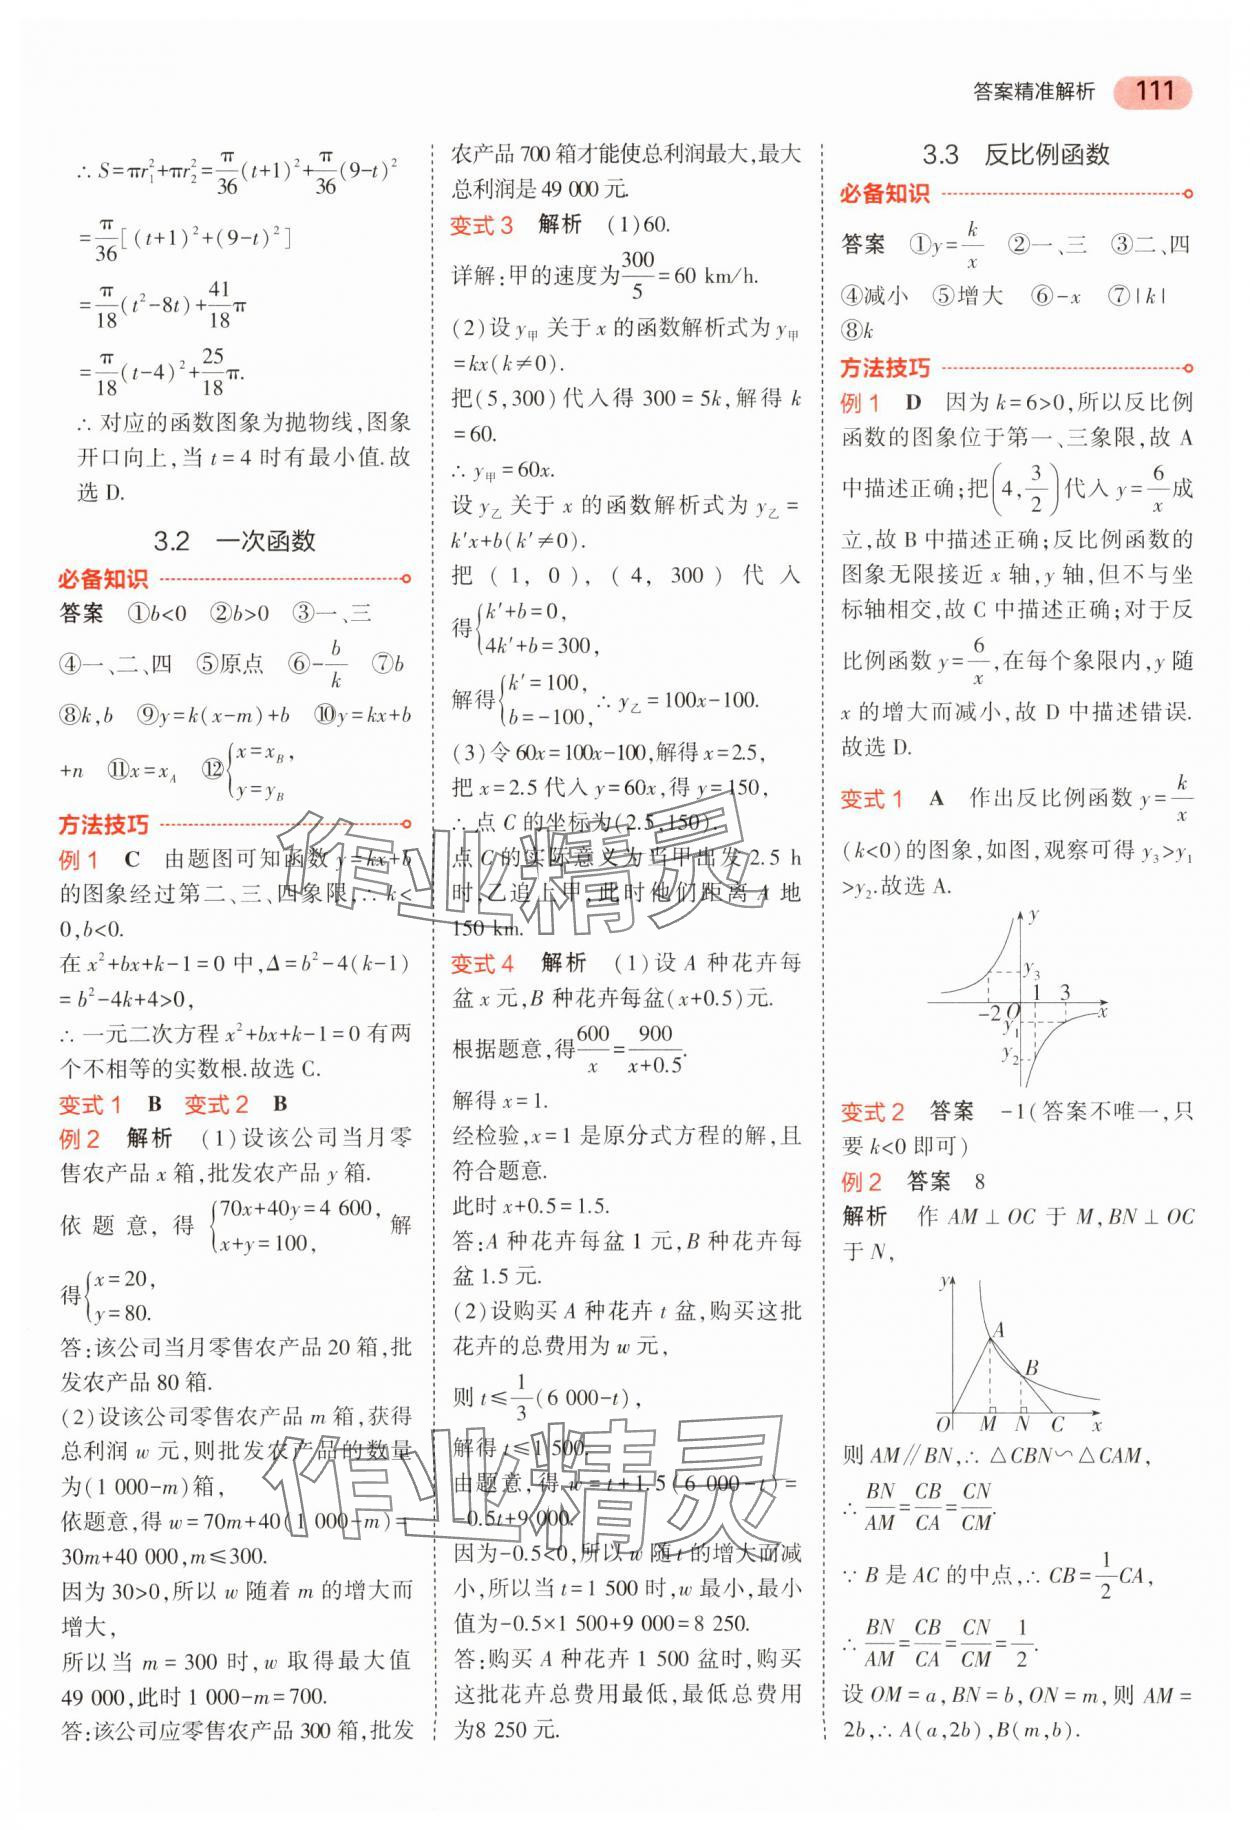 答案精准解析 111
∴ S=πr₁²+πr₂²=π/36(t+1)²+π/36(9-t)²
=π/36[(t+1)²+(9-t)²]
=π/18(t²-8t)+41/18π
=π/18(t-4)²+25/18π.
∴ 对应的函数图象为抛物线,图象
开口向上,当 t=4 时有最小值.故
选 D.
3.2 一次函数
必备知识
答案 ①b<0 ②b>0 ③一、三
④一、二、四 ⑤原点 ⑥-b/k ⑦b
⑧k,b ⑨y=k(x-m)+b ⑩y=kx+b
+n ⑪x=x_A ⑫{x=x_B,
y=y_B
方法技巧
例 1 C 由题图可知函数 y=kx+b
的图象经过第二、三、四象限,∴ k<
0,b<0.
在 x²+bx+k-1=0 中,Δ=b²-4(k-1)
=b²-4k+4>0,
∴ 一元二次方程 x²+bx+k-1=0 有两
个不相等的实数根.故选 C.
变式 1 B 变式 2 B
例 2 解析 (1)设该公司当月零
售农产品 x 箱,批发农产品 y 箱.
依题意,得{70x+40y=4 600,
x+y=100, 解
得{x=20,
y=80.
答:该公司当月零售农产品 20 箱,批
发农产品 80 箱.
(2)设该公司零售农产品 m 箱,获得
总利润 w 元,则批发农产品的数量
为(1 000-m)箱,
依题意,得 w=70m+40(1 000-m)=
30m+40 000,m≤300.
因为 30>0,所以 w 随着 m 的增大而
增大,
所以当 m=300 时,w 取得最大值
49 000,此时 1 000-m=700.
答:该公司应零售农产品 300 箱,批发
农产品 700 箱才能使总利润最大,最大
总利润是 49 000 元.
变式 3 解析 (1)60.
详解:甲的速度为300/5=60 km/h.
(2)设 y甲 关于 x 的函数解析式为 y甲
=kx(k≠0).
把(5,300)代入得 300=5k,解得 k
=60.
∴ y甲=60x.
设 y乙 关于 x 的函数解析式为 y乙=
k′x+b(k′≠0).
把(1,0),(4,300)代入
得{k′+b=0,
4k′+b=300,
解得{k′=100,
b=-100, ∴ y乙=100x-100.
(3)令 60x=100x-100,解得 x=2.5,
把 x=2.5 代入 y=60x,得 y=150,
∴ 点 C 的坐标为(2.5,150).
点 C 的实际意义为当甲出发 2.5 h
时,乙追上甲,此时他们距离 A 地
150 km.
变式 4 解析 (1)设 A 种花卉每
盆 x 元,B 种花卉每盆(x+0.5)元.
根据题意,得600/x=900/(x+0.5).
解得 x=1.
经检验,x=1 是原分式方程的解,且
符合题意.
此时 x+0.5=1.5.
答:A 种花卉每盆 1 元,B 种花卉每
盆 1.5 元.
(2)设购买 A 种花卉 t 盆,购买这批
花卉的总费用为 w 元,
则 t≤1/3(6 000-t),
解得 t≤1 500.
由题意,得 w=t+1.5(6 000-t)=
-0.5t+9 000.
因为-0.5<0,所以 w 随 t 的增大而减
小,所以当 t=1 500 时,w 最小,最小
值为-0.5×1 500+9 000=8 250.
答:购买 A 种花卉 1 500 盆时,购买
这批花卉总费用最低,最低总费用
为8 250 元.
3.3 反比例函数
必备知识
答案 ①y=k/x ②一、三 ③二、四
④减小 ⑤增大 ⑥-x ⑦|k|
⑧k
方法技巧
例 1 D 因为 k=6>0,所以反比例
函数的图象位于第一、三象限,故 A
中描述正确;把(4,3/2)代入 y=6/x成
立,故 B 中描述正确;反比例函数的
图象无限接近 x 轴,y 轴,但不与坐
标轴相交,故 C 中描述正确;对于反
比例函数 y=6/x,在每个象限内,y 随
x 的增大而减小,故 D 中描述错误.
故选 D.
变式 1 A 作出反比例函数 y=k/x
(k<0)的图象,如图,观察可得 y₃>y₁
>y₂.故选 A.
y
y₃
-2 O 1 3 x
y₁
y₂
变式 2 答案 -1(答案不唯一,只
要 k<0 即可)
例 2 答案 8
解析 作 AM⊥OC 于 M,BN⊥OC
于 N,
y
A
B
O M N C x
则 AM∥BN,∴ △CBN∽△CAM,
∴ BN/AM=CB/CA=CN/CM.
∵ B 是 AC 的中点,∴ CB=1/2CA,
∴ BN/AM=CB/CA=CN/CM=1/2.
设 OM=a,BN=b,ON=m,则 AM=
2b,∴ A(a,2b),B(m,b).
作业精灵
作业精灵